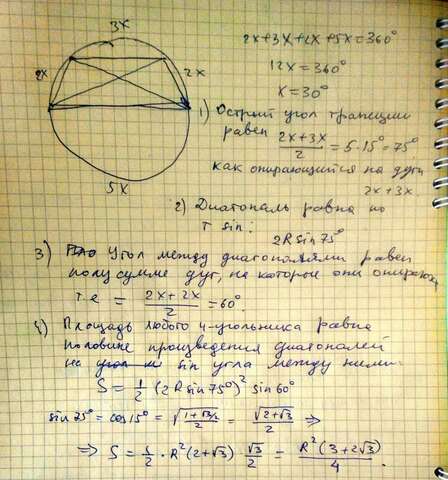 3x
2x
2x
5x
2x+3x+2x+5x=360°
12x=360°
x=30°
1) Острый угол трапеции
равен (2x+3x)/2 = 5·15°=75°
как опирающийся на дуги
2x+3x
2) Диагональ равна по
т sin:
2R sin 75°
3) Угол между диагоналями равен
полусумме дуг, на которые они опираются
т.е = (2x+2x)/2 = 60°
4) Площадь любого 4-угольника равна
половине произведения диагоналей
на sin угла между ними
S = 1/2 (2R sin 75°)² sin 60°
sin 75° = cos 15° = √((1+√3/2)/2) = √(2+√3)/2 ⇒
⇒ S = 1/2 · R²(2+√3) · √3/2 = R²(3+2√3)/4.